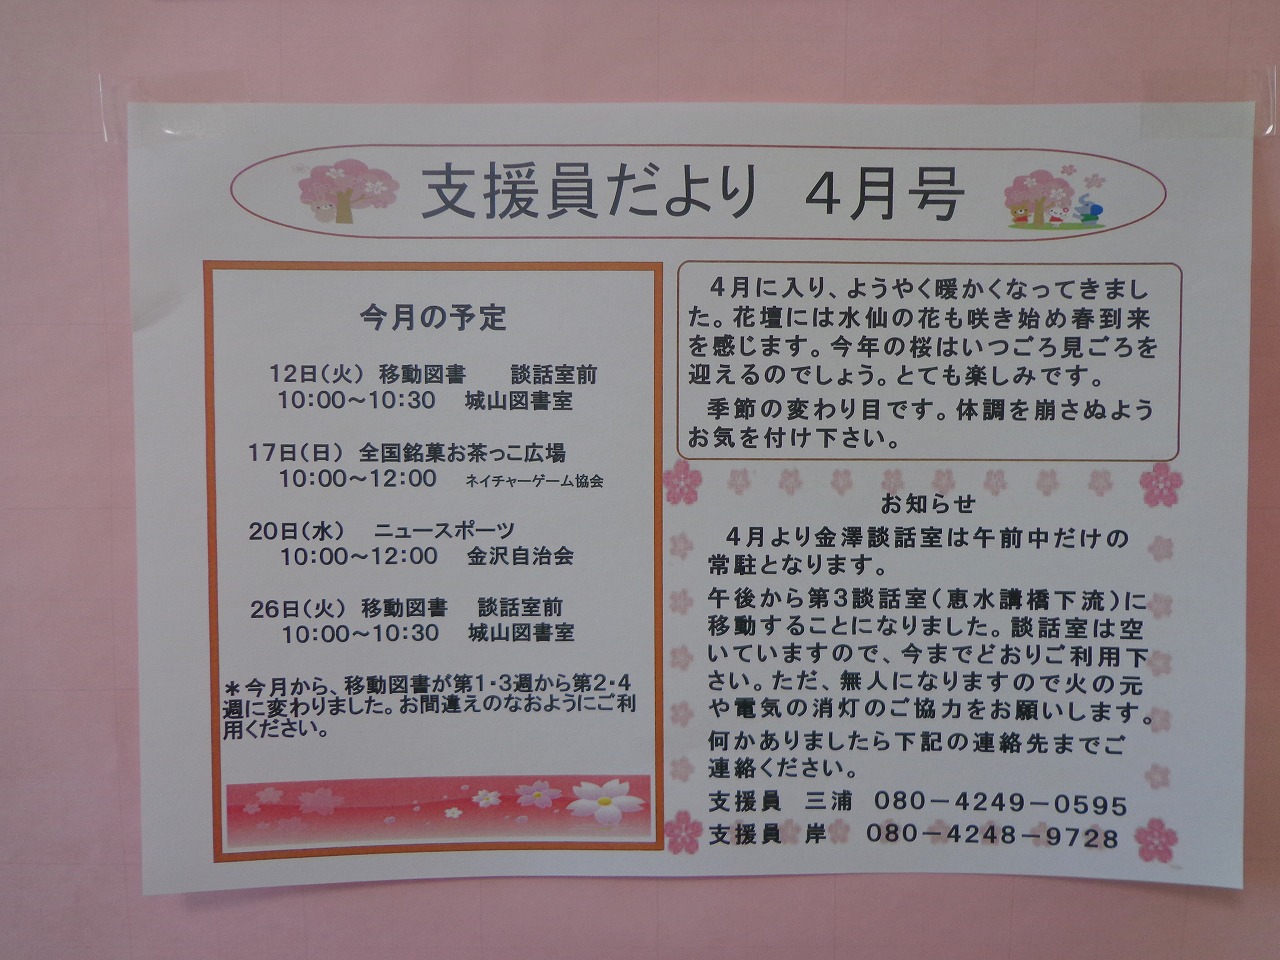 支援員だより　４月号
今月の予定
12日（火）　移動図書　　談話室前
10：00～10：30　城山図書室
17日（日）　全国銘菓お茶っこ広場
10：00～12：00　ネイチャーゲーム協会
20日（水）　ニュースポーツ
10：00～12：00　金沢自治会
26日（火）　移動図書　談話室前
10：00～10：30　城山図書室
＊今月から、移動図書が第1・3週から第2・4
週に変わりました。お間違えのなおようにご利
用ください。
４月に入り、ようやく暖かくなってきまし
た。花壇には水仙の花も咲き始め春到来
を感じます。今年の桜はいつごろ見ごろを
迎えるのでしょう。とても楽しみです。
季節の変わり目です。体調を崩さぬよう
お気を付け下さい。
お知らせ
４月より金澤談話室は午前中だけの
常駐となります。
午後から第３談話室（恵水講橋下流）に
移動することになりました。談話室は空
いていますので、今までどおりご利用下
さい。ただ、無人になりますので火の元
や電気の消灯のご協力をお願いします。
何かありましたら下記の連絡先までご
連絡ください。
支援員　三浦　080－4249－0595
支援員　岸　080－4248－9728